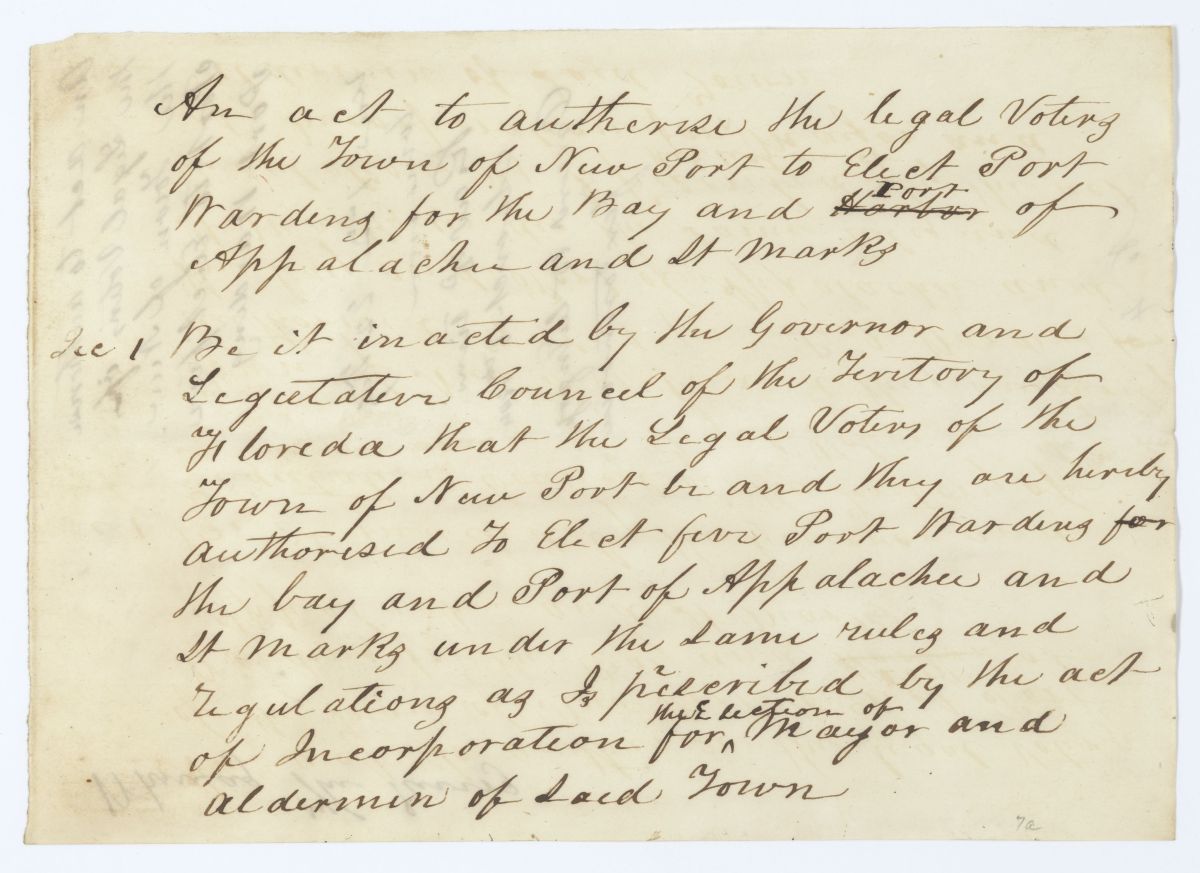 An act to autherise the legal Voters
of the Town of New Port to Elect Port
Wardens for the Bay and ~~Harbor~~ Port of
Appalachee and St Marks
Sec 1 Be it inacted by the Governor and
Legistative Council of the Teritory of
Floreda that the Legal Voters of the
Town of New Port be and they are hereby
authorised To Elect five Port Wardens for
the bay and Port of Appalachee and
St Marks under the same rules and
regulations as Is prescribed by the act
of Incorporation for ^ the Election of Mayor and
aldermen of Saed Town
7a